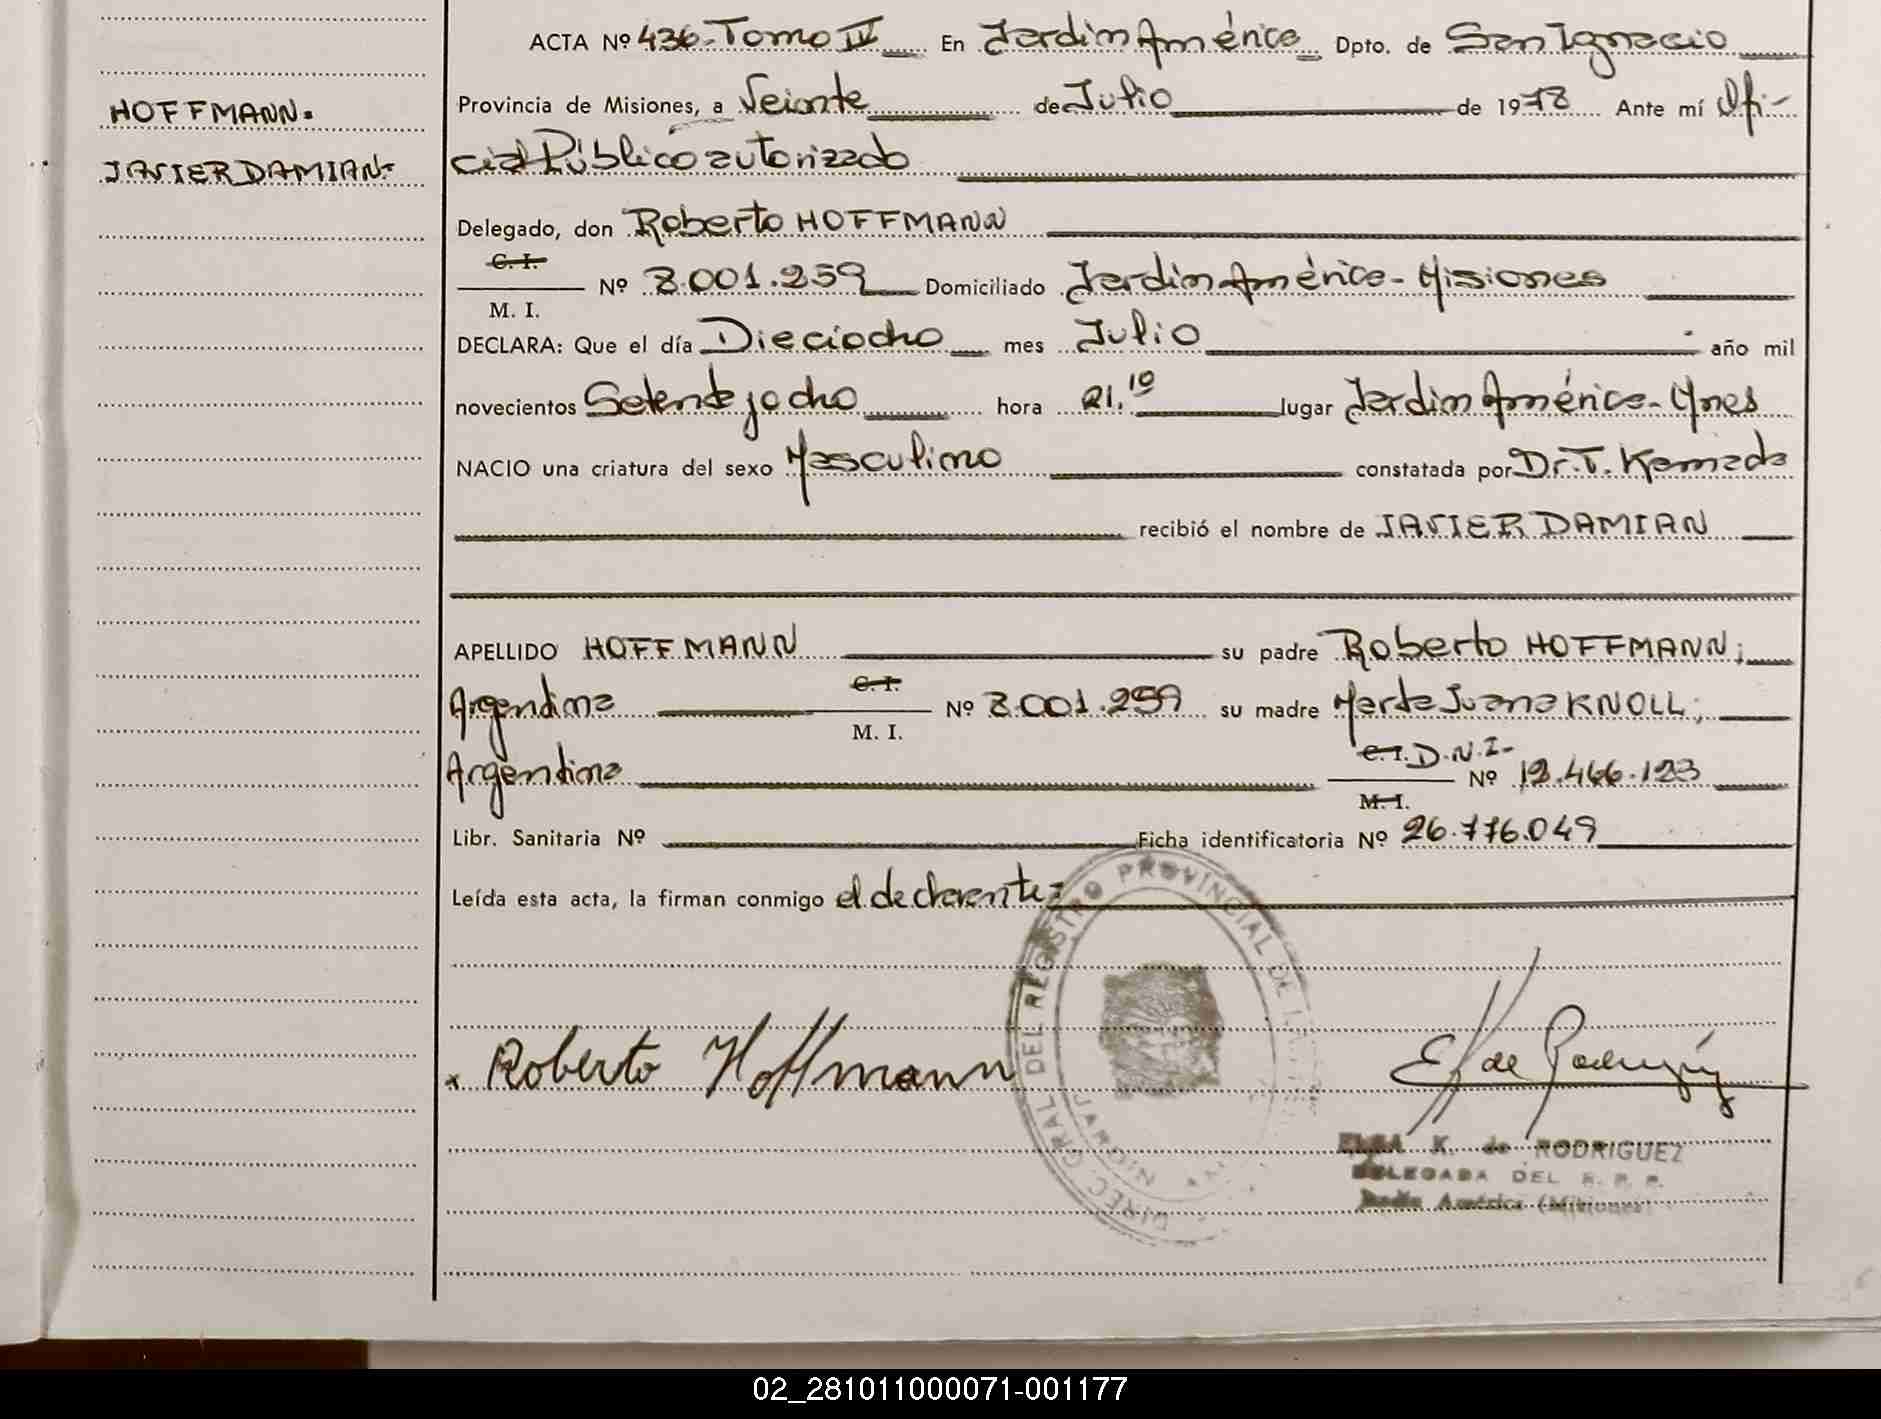 ACTA Nº 436-Tomo IV En Jardín América Dpto. de San Ignacio
HOFFMANN.
Provincia de Misiones, a Veinte de Julio de 1978 Ante mí Ofi-
JAVIER DAMIAN-
cial Público autorizado
Delegado, don Roberto HOFFMANN
C. I.
Nº 8.001.259 Domiciliado Jardín América - Misiones
M. I.
DECLARA: Que el día Dieciocho mes Julio año mil
novecientos Setenta y ocho hora 21.10 lugar Jardín América - Mnes
NACIO una criatura del sexo Masculino constatada por Dr. T. Kamada
recibió el nombre de JAVIER DAMIAN
APELLIDO HOFFMANN su padre Roberto HOFFMANN;
Argentina C. I. Nº 8.001.259 su madre Marta Juana KNOLL;
M. I.
Argentina C. I. D.N.I- Nº 12.466.123
M. I.
Libr. Sanitaria Nº Ficha identificatoria Nº 26.776.049
Leída esta acta, la firman conmigo el declarante
DIREC. GRAL DEL REGISTRO PROVINCIAL DE
x Roberto Hoffmann
E K de Rodriguez
ELSA K. de RODRIGUEZ
DELEGADA DEL R. P. P.
Jardín América (Misiones)
02_281011000071-001177